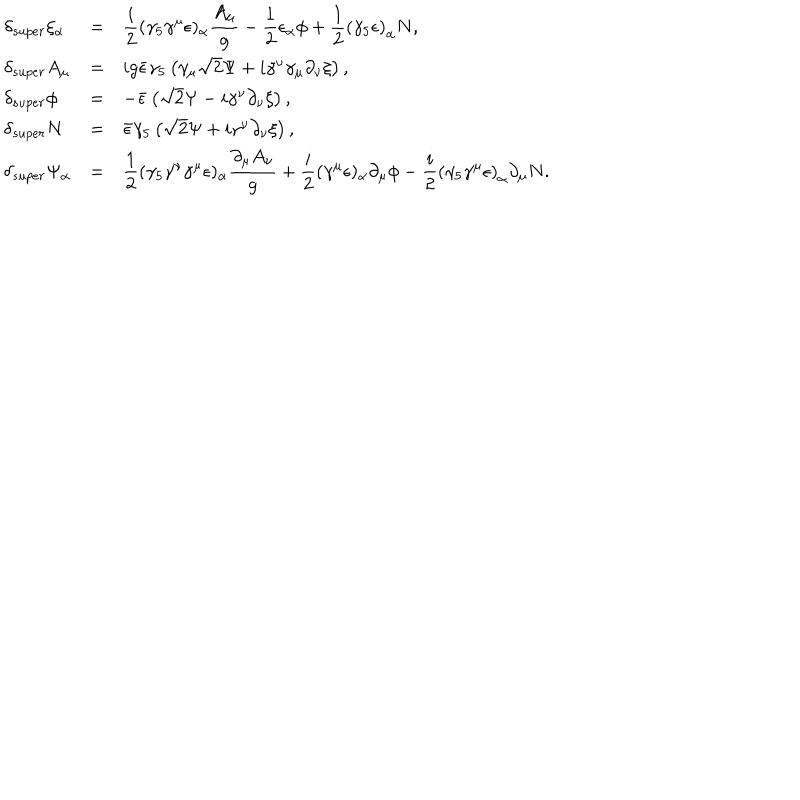 δ_super ξ_α = \frac{i}{2}(γ_5γ^με)_α \frac{A_μ}{g} − \frac{1}{2}ε_αφ + \frac{1}{2}(γ_5ε)_α N,
δ_super A_μ = ig\bar{ε}γ_5 (γ_μ√2Ψ + iγ^νγ_μ∂_νξ),
δ_super φ = −\bar{ε} (√2Ψ − iγ^ν∂_νξ),
δ_super N = \bar{ε}γ_5 (√2Ψ + iγ^ν∂_νξ),
δ_super Ψ_α = \frac{1}{2}(γ_5γ^νγ^με)_α \frac{∂_μA_ν}{g} + \frac{i}{2}(γ^με)_α∂_μφ − \frac{i}{2}(γ_5γ^με)_α∂_μN.